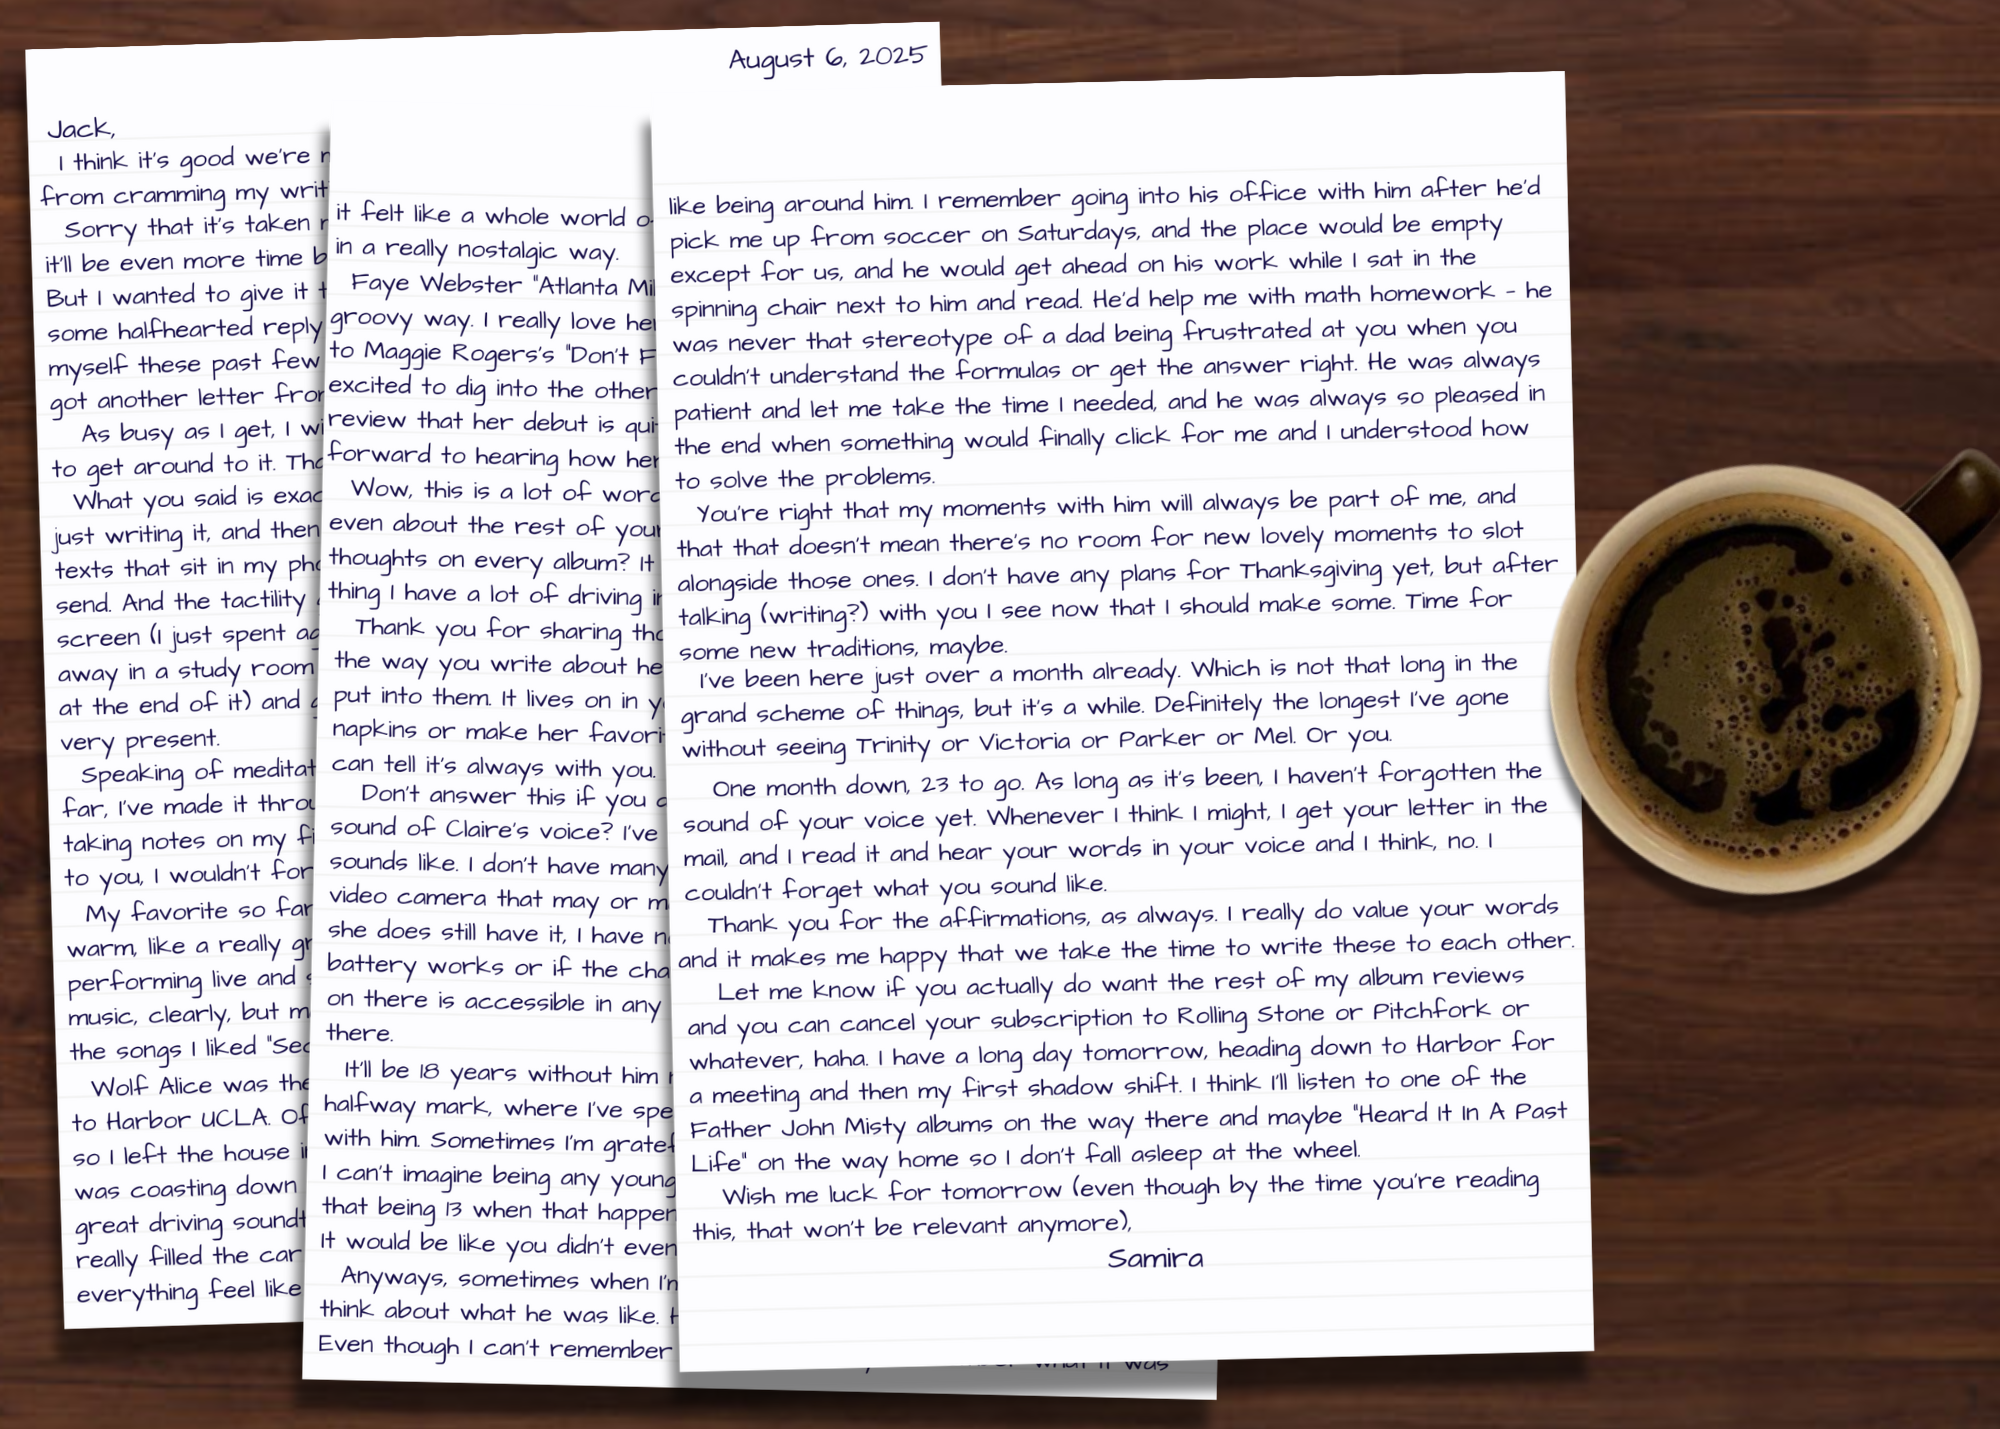 August 6, 2025
Jack,
I think it's good we're
from cramming my writ
Sorry that it's taken
it'll be even more time
But I wanted to give it
some halfhearted reply
myself these past few
got another letter from
As busy as I get, I
to get around to it.
What you said is
just writing it, and then
texts that sit in my
send. And the tactility
screen (I just spent
away in a study room
at the end of it) and
very present.
Speaking of
far, I've made it
taking notes on my
to you, I wouldn't
My favorite so far
warm, like a really
performing live and
music, clearly, but
the songs I liked
Wolf Alice was the
to Harbor UCLA.
so I left the house
was coasting down
great driving
really filled the car
everything feel like
it felt like a whole world
in a really nostalgic way.
Faye Webster "Atlanta
groovy way. I really love
to Maggie Rogers's "Don't F
excited to dig into the other
review that her debut is
forward to hearing how her
Wow, this is a lot of
even about the rest of your
thoughts on every album? It
thing I have a lot of driving
Thank you for sharing
the way you write about
put into them. It lives on in
napkins or make her
can tell it's always with you.
Don't answer this if you
sound of Claire's voice? I've
sounds like. I don't have many
video camera that may or
she does still have it, I have
battery works or if the
on there is accessible in any
there.
It'll be 18 years without him
halfway mark, where I've
with him. Sometimes I'm
I can't imagine being any
that being 13 when that
It would be like you didn't even
Anyways, sometimes when I'm
think about what he was like.
Even though I can't remember
what it was
like being around him. I remember going into his office with him after he'd
pick me up from soccer on Saturdays, and the place would be empty
except for us, and he would get ahead on his work while I sat in the
spinning chair next to him and read. He'd help me with math homework - he
was never that stereotype of a dad being frustrated at you when you
couldn't understand the formulas or get the answer right. He was always
patient and let me take the time I needed, and he was always so pleased in
the end when something would finally click for me and I understood how
to solve the problems.
You're right that my moments with him will always be part of me, and
that that doesn't mean there's no room for new lovely moments to slot
alongside those ones. I don't have any plans for Thanksgiving yet, but after
talking (writing?) with you I see now that I should make some. Time for
some new traditions, maybe.
I've been here just over a month already. Which is not that long in the
grand scheme of things, but it's a while. Definitely the longest I've gone
without seeing Trinity or Victoria or Parker or Mel. Or you.
One month down, 23 to go. As long as it's been, I haven't forgotten the
sound of your voice yet. Whenever I think I might, I get your letter in the
mail, and I read it and hear your words in your voice and I think, no. I
couldn't forget what you sound like.
Thank you for the affirmations, as always. I really do value your words
and it makes me happy that we take the time to write these to each other.
Let me know if you actually do want the rest of my album reviews
and you can cancel your subscription to Rolling Stone or Pitchfork or
whatever, haha. I have a long day tomorrow, heading down to Harbor for
a meeting and then my first shadow shift. I think I'll listen to one of the
Father John Misty albums on the way there and maybe "Heard It In A Past
Life" on the way home so I don't fall asleep at the wheel.
Wish me luck for tomorrow (even though by the time you're reading
this, that won't be relevant anymore),
Samira